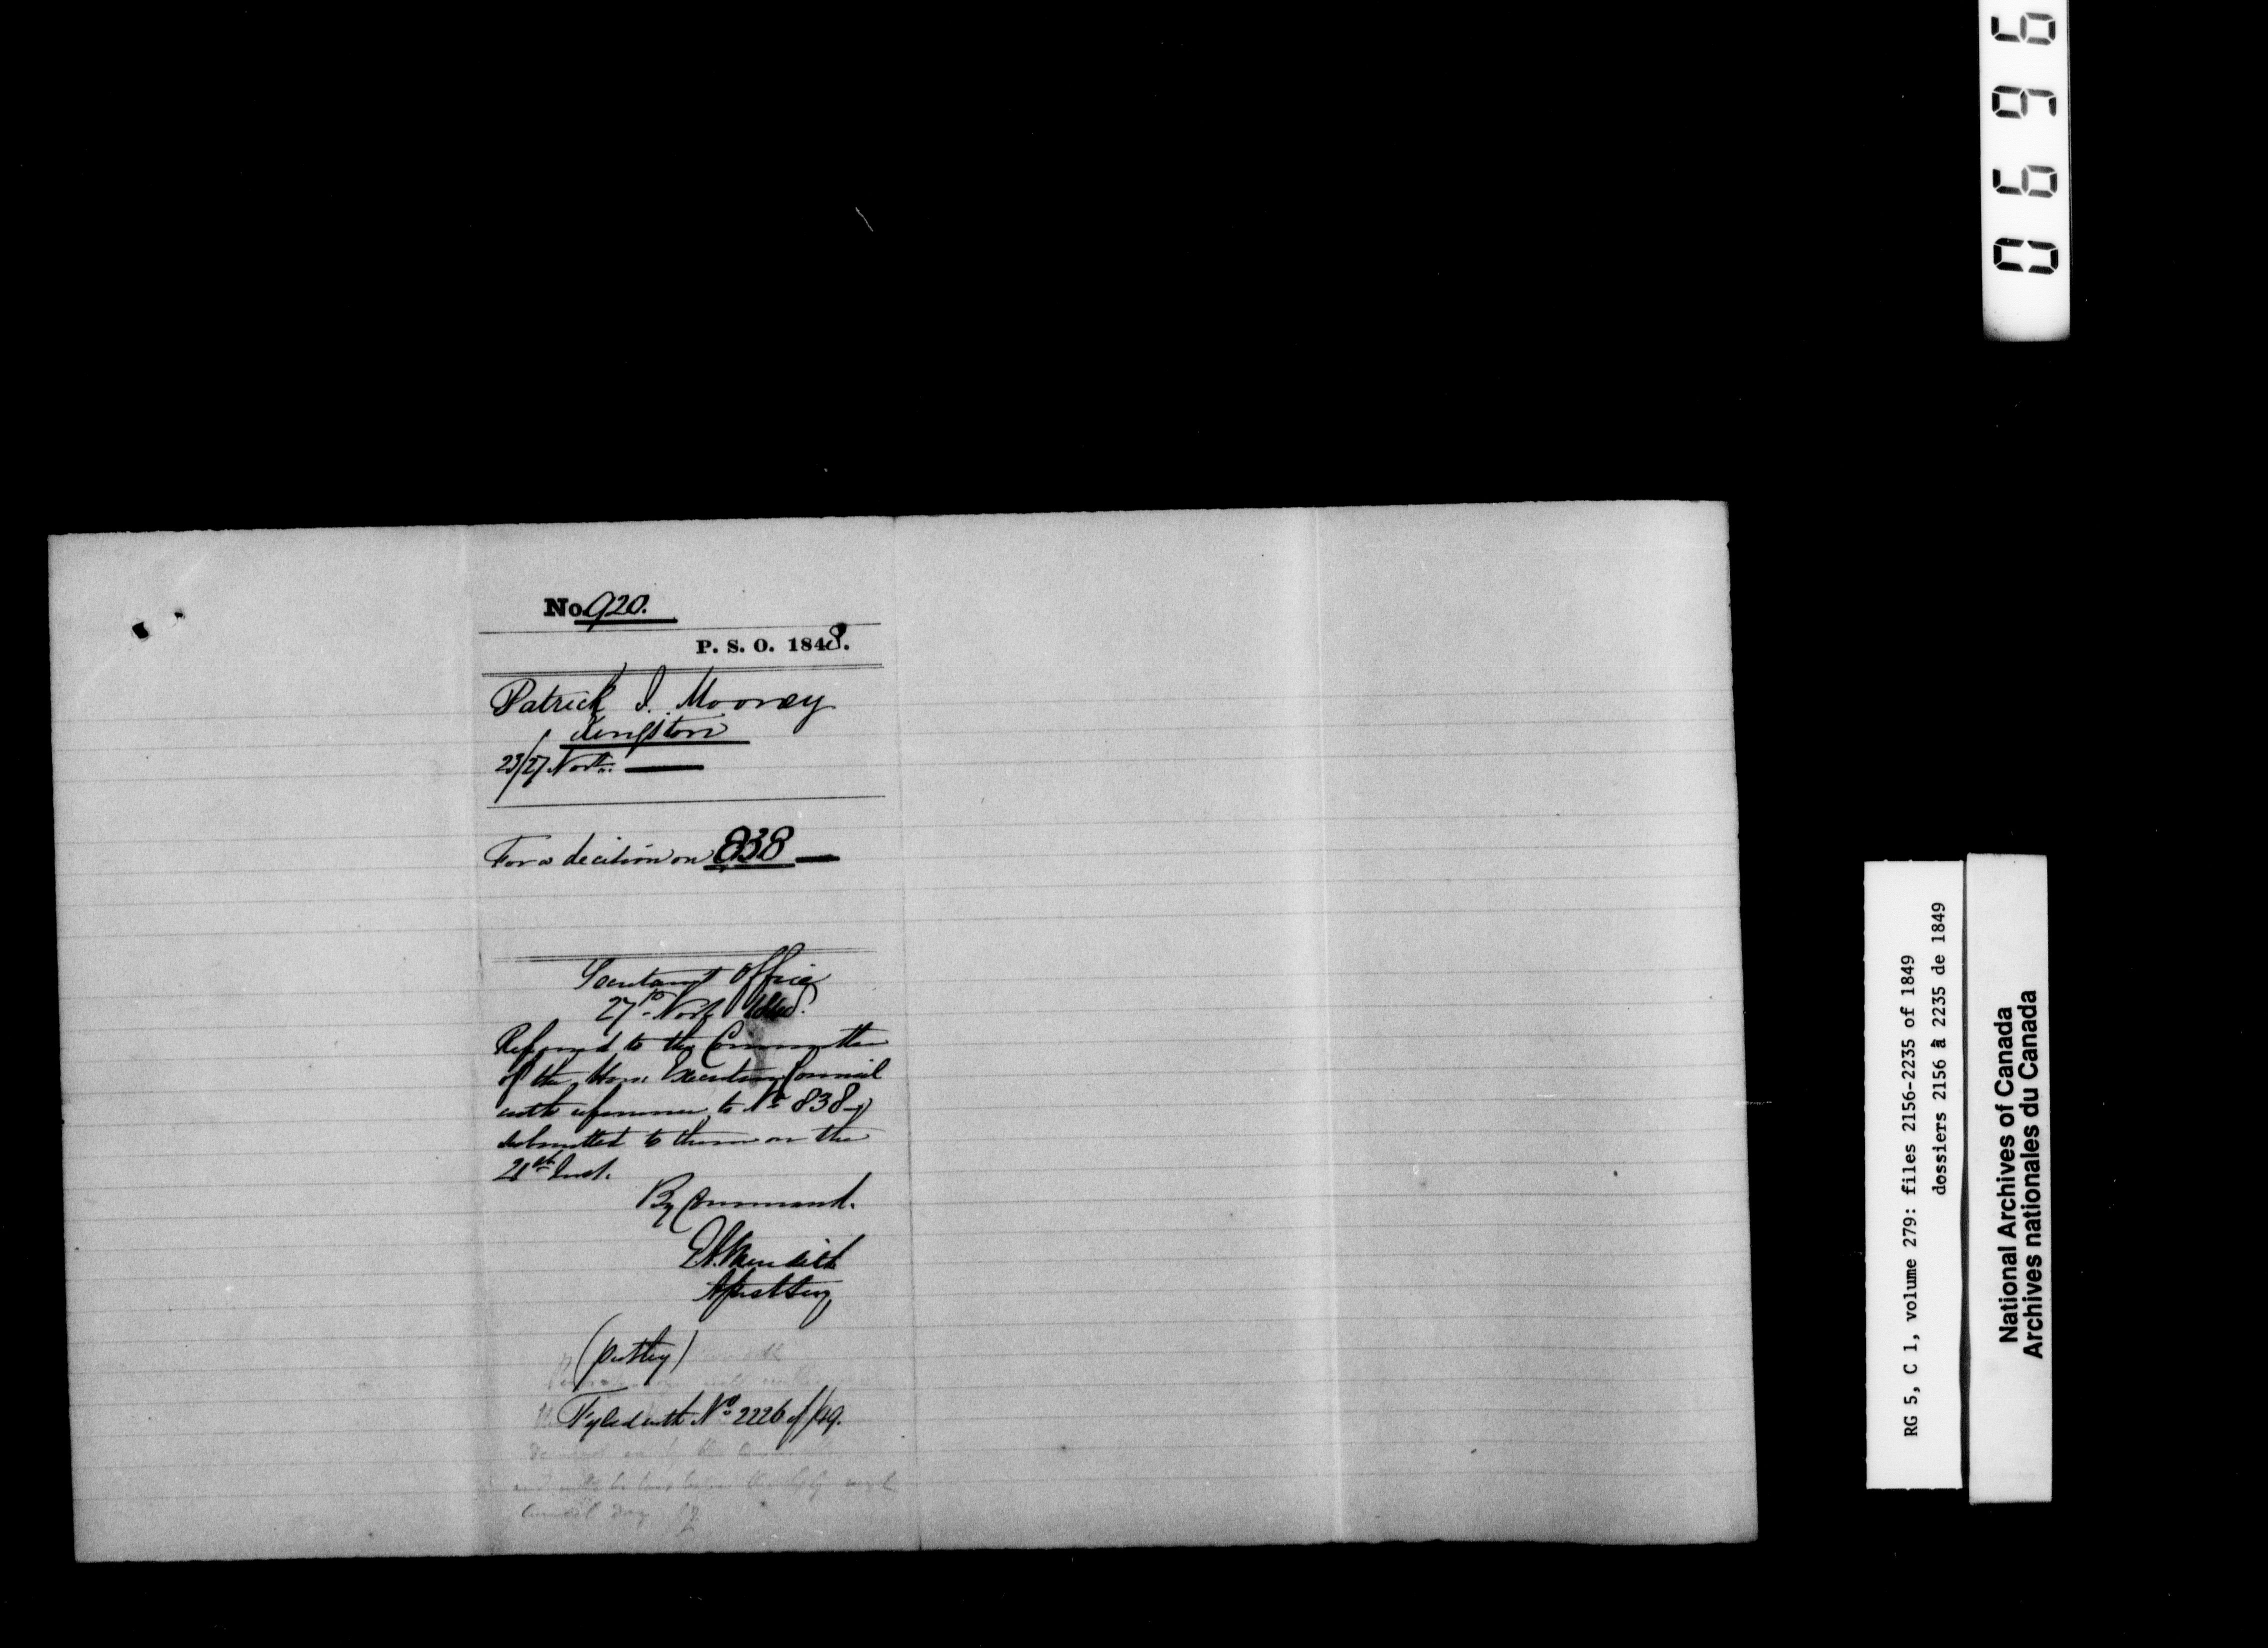 No. 920.
P. S. O. 1848.
Patrick J. Mooney
Kingston
23/27 Novr.
For a decision on 838
Secretary's Office
27th Novr 1848.
Referred to the Committee
of the Hon. Executive Council
with reference to No 838
submitted to them on the
21st Inst.
By Command.
E. A. Meredith
Asst Secy
Fyled with No 2226 of /49.
and will be
Council Day
0696
RG 5, C 1, volume 279: files 2156-2235 of 1849
dossiers 2156 à 2235 de 1849
National Archives of Canada
Archives nationales du Canada